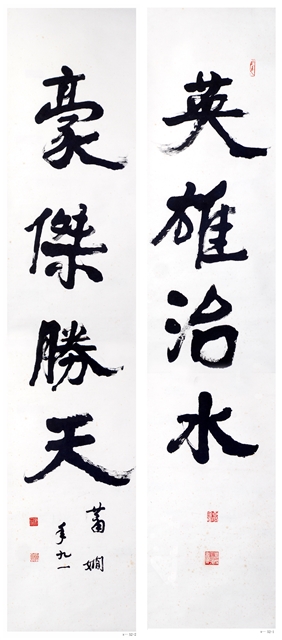 英雄治水
豪傑勝天
蕭嫻
年九一